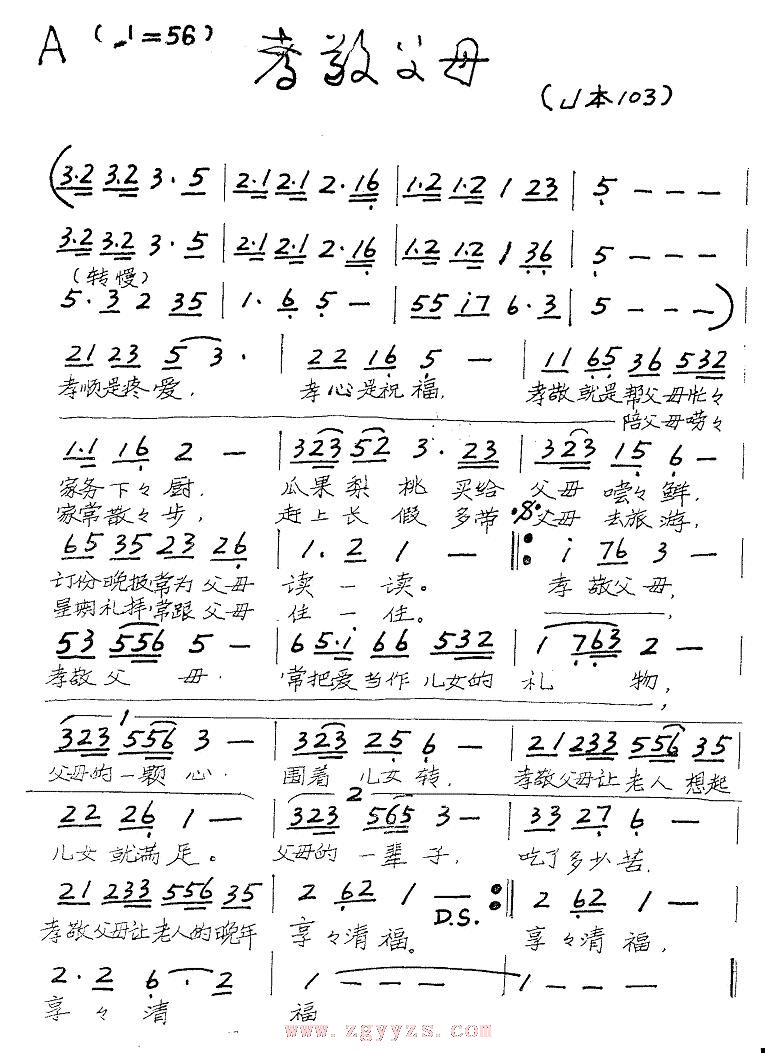 A (♩=56) 孝敬父母
(山本103)
(3.2 3.2 3. 5 | 2.1 2.1 2. 16 | 1.2 1.2 1 23 | 5 — — — |
3.2 3.2 3. 5 | 2.1 2.1 2. 16 | 1.2 1.2 1 36 | 5 — — — |
(转慢)
5. 3 2 35 | 1. 6 5 — | 55 i7 6. 3 | 5 — — —)
21 23 5 3. | 22 16 5 — | 11 65 36 532
孝顺是疼爱, 孝心是祝福, 孝敬就是帮父母忙々
陪父母唠々
1.1 16 2 — | 323 52 3. 23 | 323 15 6 — |
家务下々厨, 瓜果梨桃买给父母嚐々鲜,
家常散々步, 赶上长假多带父母去旅游,
65 35 23 26 | 1. 2 1 — ‖: i 76 3 — |
订份晚报常为父母读一读。 孝敬父母,
常跟父母住一住。
53 556 5 — | 6 5.i 66 532 | 1 763 2 — |
孝敬父母 常把爱当作儿女的礼物,
1
323 556 3 — | 323 25 6 — | 21 233 556 35 |
父母的一颗心 围着儿女转, 孝敬父母让老人想起
2
22 26 1 — | 323 565 3 — | 33 27 6 — |
儿女就满足。 父母的一辈子, 吃了多少苦,
21 233 556 35 | 2 62 1 — :‖ 2 62 1 — |
D.S.
孝敬父母让老人的晚年 享々清福。 享々清福,
2. 2 6. 2 | 1 — — — | 1 — — — ‖
享々清 福
www.zgyyzs.com